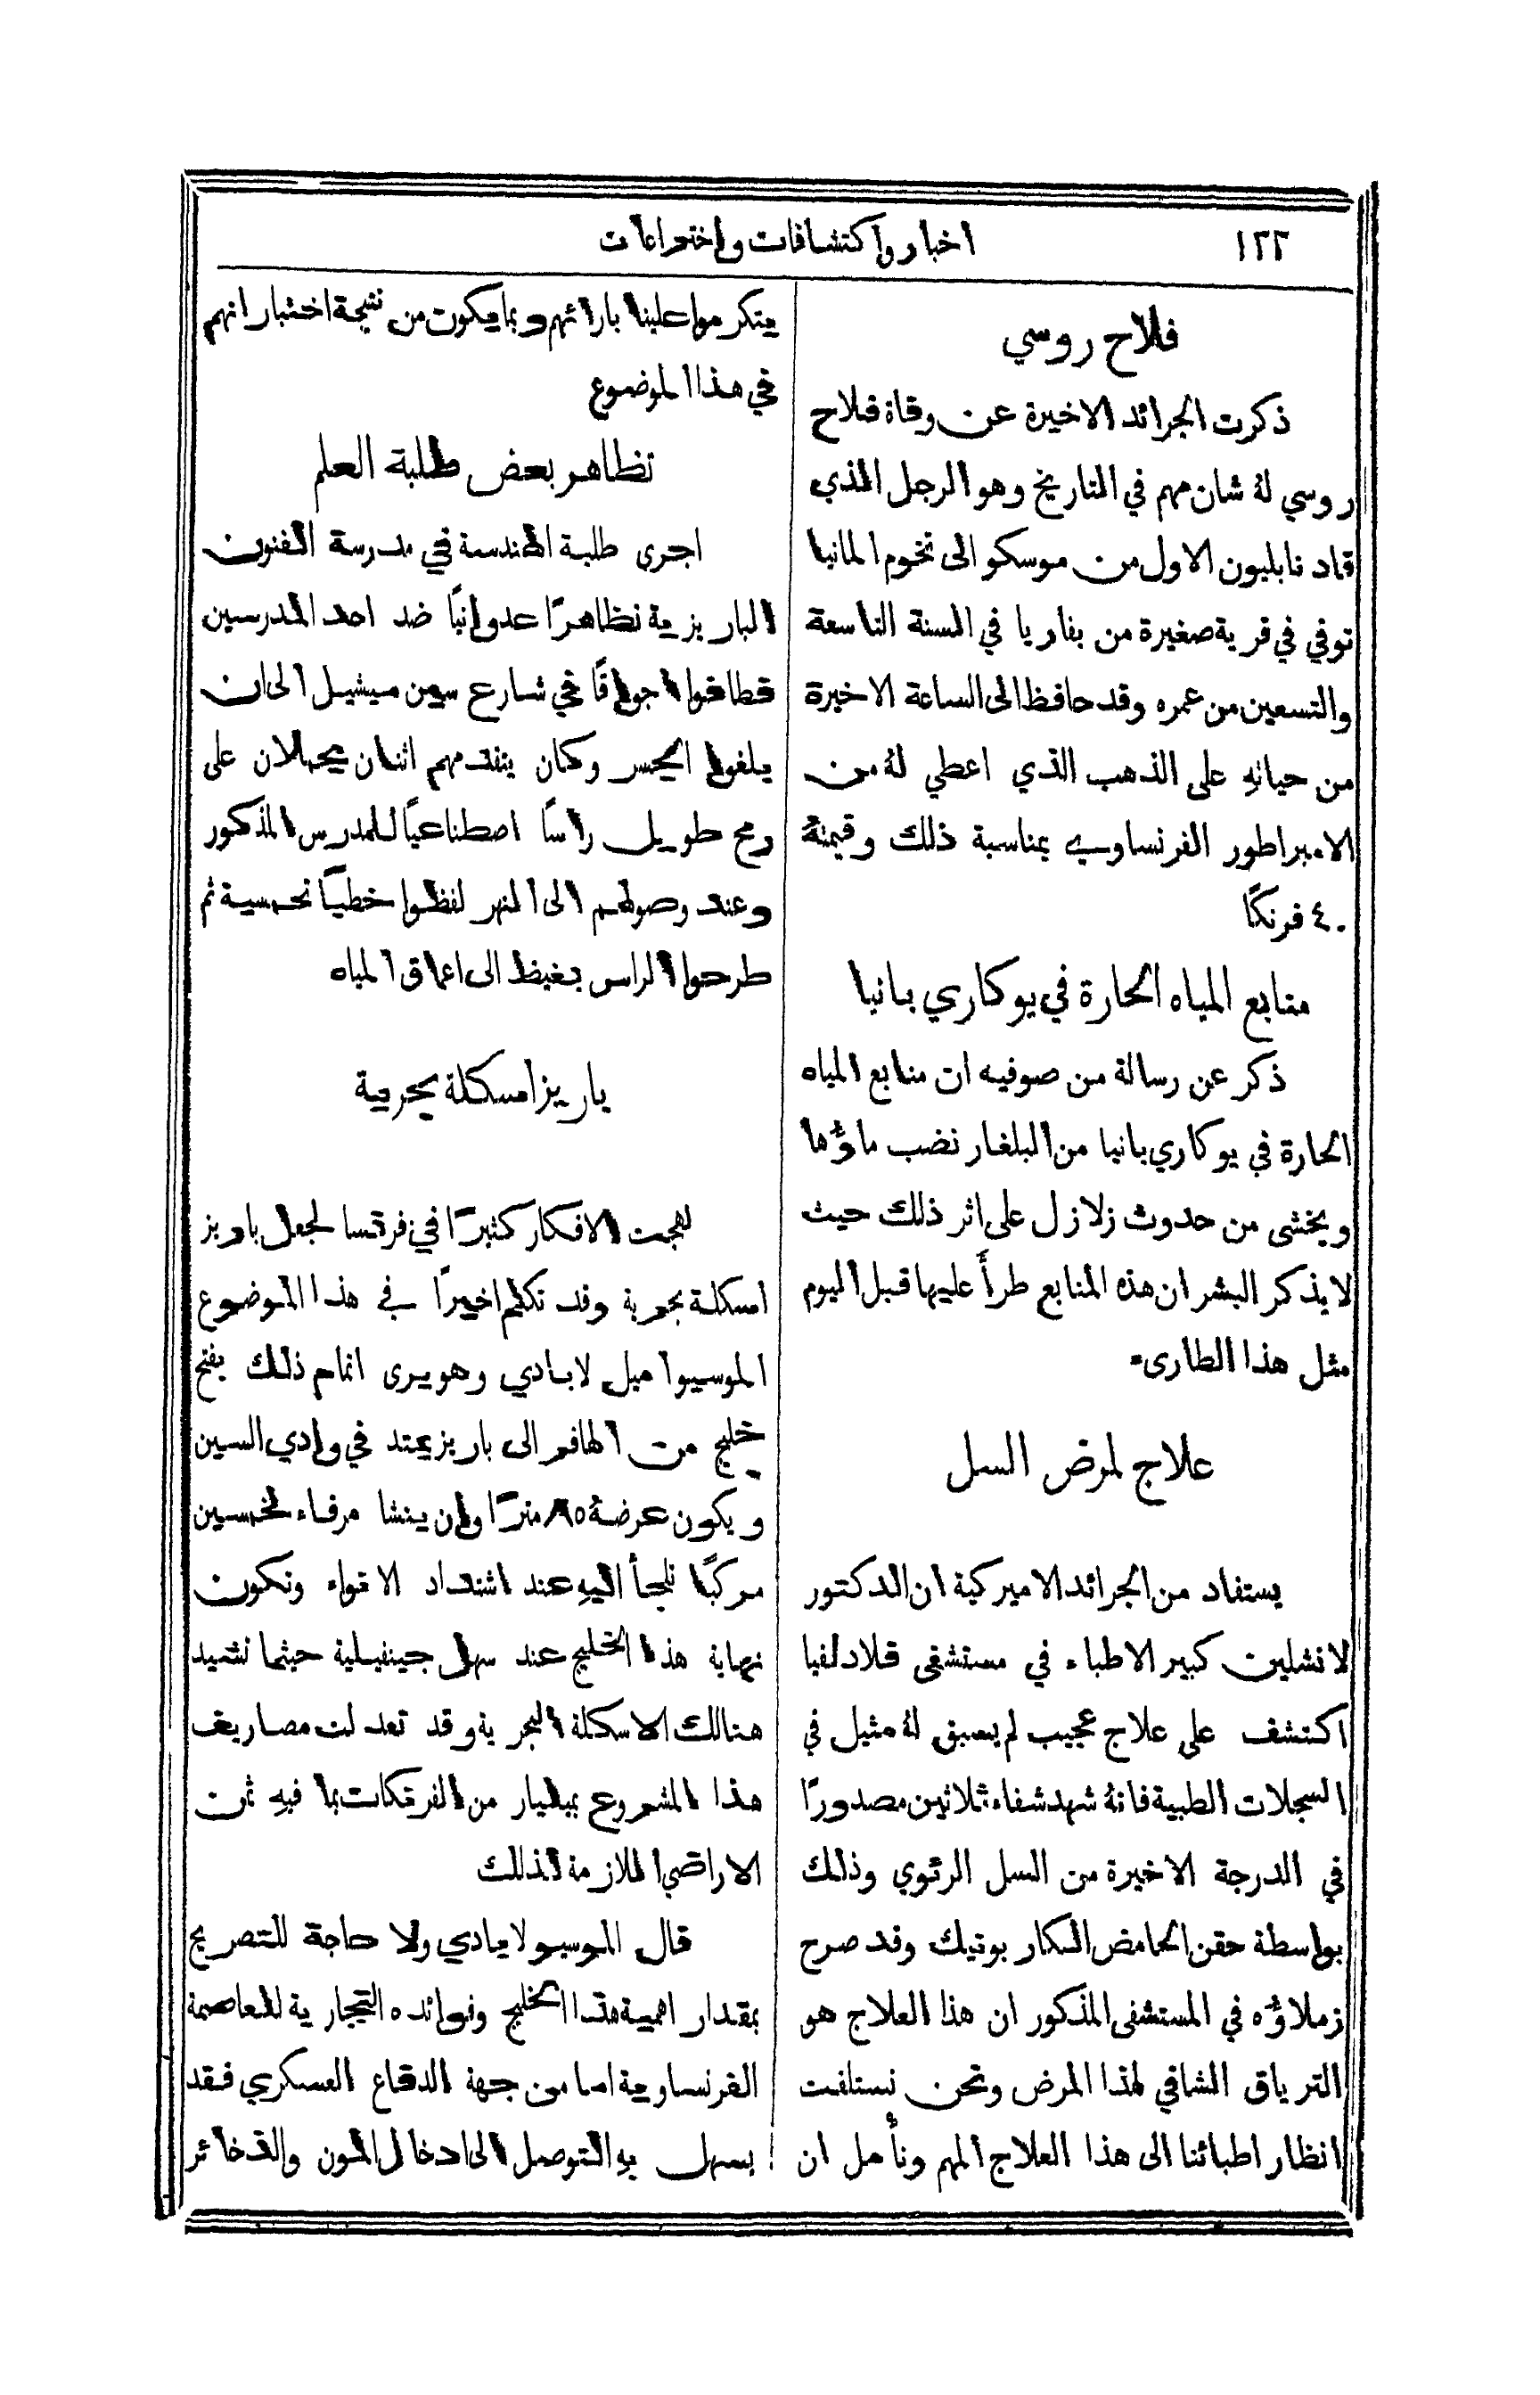 ١٢٢
اخبار واكتشافات واختراعات
فلاح روسي
ذكرت الجرائد الاخيرة عن وفاة فلاح
روسي لهُ شان مهم في التاريخ وهو الرجل الذي
قاد نابليون الاول من موسكو الى تخوم المانيا
توفي في قرية صغيرة من بفاريا في السنة التاسعة
والتسعين من عمره وقد حافظ الى الساعة الاخيرة
من حياتهِ على الذهب الذي اعطي لهُ من
الامبراطور الفرنساوي بمناسبة ذلك وقيمتهُ
٤٠ فرنكًا
منابع المياه الحارة في يوكاري بانيا
ذكر عن رسالة من صوفيه ان منابع المياه
الحارة في يوكاري بانيا من البلغار نضب ماؤُها
ويخشى من حدوث زلازل على اثر ذلك حيث
لا يذكر البشر ان هذه المنابع طرأَ عليها قبل اليوم
مثل هذا الطارىء
علاج لمرض السل
يستفاد من الجرائد الاميركية ان الدكتور
لانشلين كبير الاطباء في مستشفى فلادلفيا
اكتشف على علاج عجيب لم يسبق لهُ مثيل في
السجلات الطبية فانهُ شهد شفاء ثلاثين مصدورًا
في الدرجة الاخيرة من السل الرئوي وذلك
بواسطة حقن الحامض السكار بوتيك وقد صرح
زملاؤُه في المستشفى المذكور ان هذا العلاج هو
الترياق الشافي لهذا المرض ونحن نستلفت
انظار اطبائنا الى هذا العلاج المهم ونأمل ان
يتكرموا علينا بارائهم وبما يكون من نتيجة اختباراتهم
في هذا الموضوع
تظاهر بعض طلبة العلم
اجرى طلبة الهندسة في مدرسة الفنون
الباريزية تظاهرًا عدوانيًا ضد احد المدرسين
فطافوا اجواقًا في شارع سين ميشيل الى ان
بلغوا الجسر وكان يتقدمهم اثنان يحملان على
رمح طويل راسًا اصطناعيًا للمدرس المذكور
وعند وصولهم الى النهر لفظوا خطبًا تحمسية ثم
طرحوا الراس بغيظ الى اعماق المياه
باريز اسكلة بحرية
لهجت الافكار كثيرًا في فرنسا لجعل باريز
اسكلة بحرية وقد تكلم اخيرًا في هذا الموضوع
الموسيو اميل لابادي وهو يرى اتمام ذلك بفتح
خليج من الهافر الى باريز يمتد في وادي السين
ويكون عرضهُ ٨٥ مترًا وان ينشا مرفاء لخمسين
مركبًا تلجأ اليهِ عند اشتداد الانواء وتكون
نهاية هذا الخليج عند سهل جينفيلية حيثما تشيد
هنالك الاسكلة البحرية وقد تعدلت مصاريف
هذا المشروع بمليار من الفرنكات بما فيهِ ثمن
الاراضي اللازمة لذلك
قال الموسيو لابادي ولا حاجة للتصريح
بمقدار اهمية هذا الخليج وفوائده التجارية للعاصمة
الفرنساوية اما من جهة الدفاع العسكري فقد
يسهل بهِ التوصل الى ادخال المون والذخائر